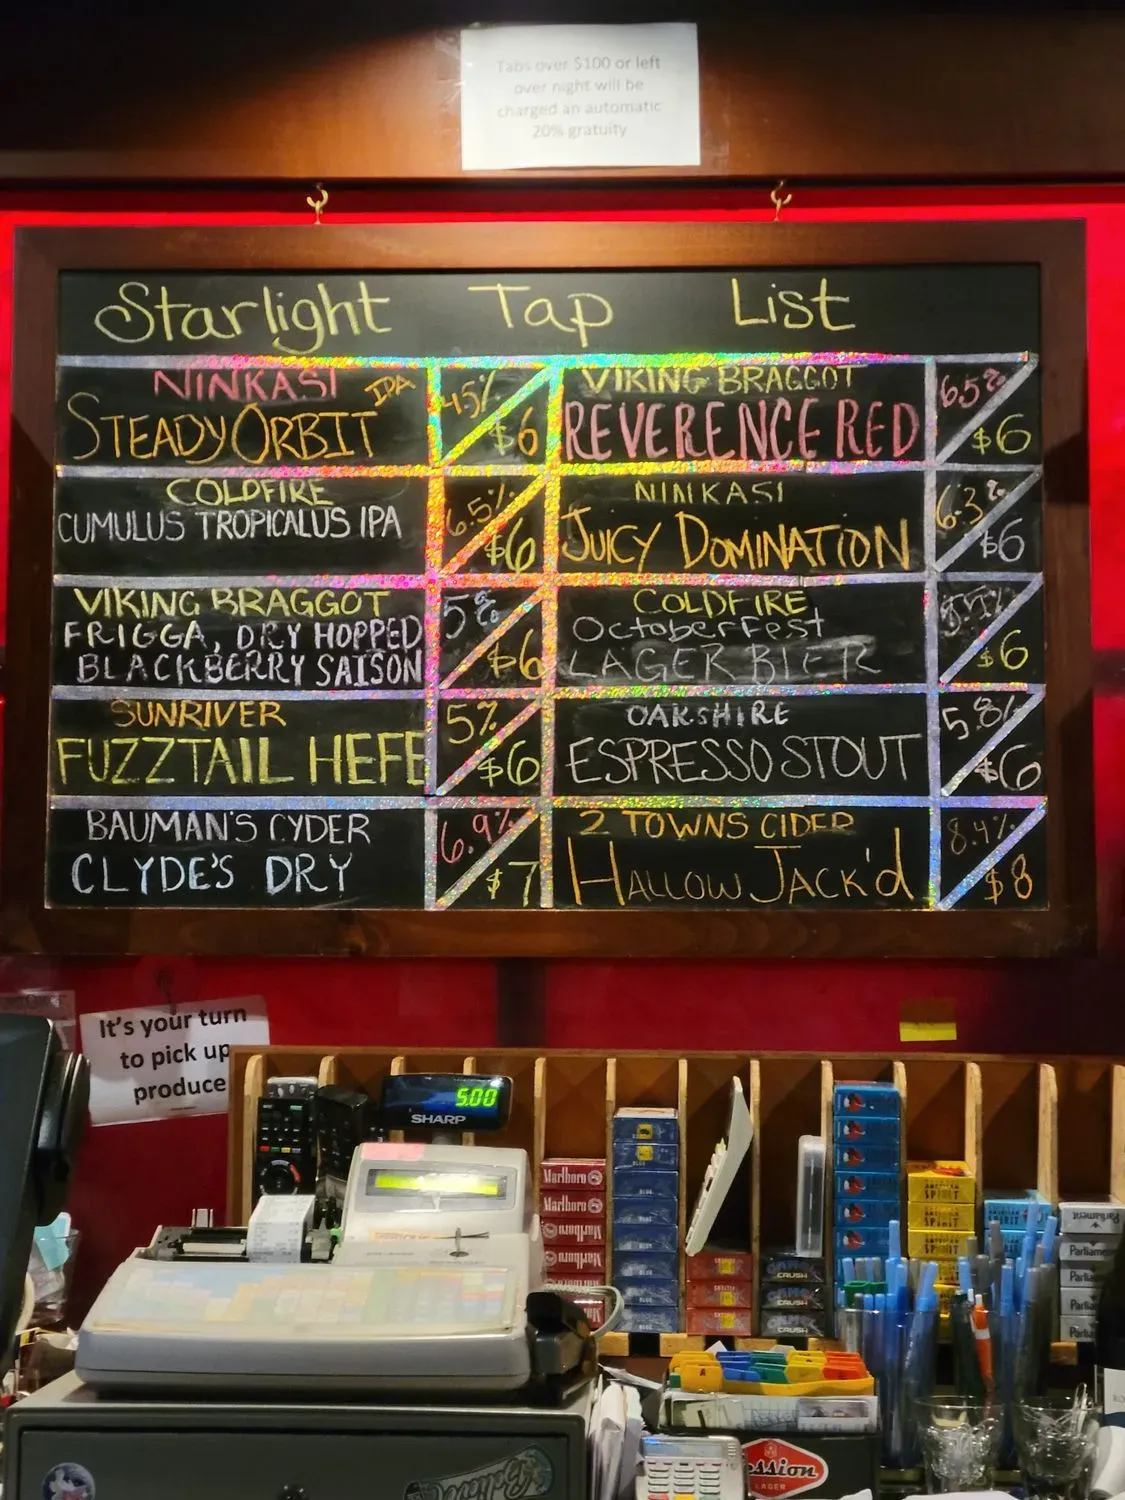 Tabs over $100 or left
over night will be
charged an automatic
20% gratuity
Starlight Tap List
NINKASI
STEADY ORBIT IPA
4.5%
$6
VIKING BRAGGOT
REVERENCE RED
6.5%
$6
COLDFIRE
CUMULUS TROPICALUS IPA
6.5%
$6
NINKASI
JUICY DOMINATION
6.3%
$6
VIKING BRAGGOT
FRIGGA, DRY HOPPED
BLACKBERRY SAISON
5%
$6
COLDFIRE
OctoberFest
LAGER BIER
$6
SUNRIVER
FUZZTAIL HEFE
5%
$6
OAKSHIRE
ESPRESSO STOUT
5.8%
$6
BAUMAN'S CYDER
CLYDE'S DRY
6.9%
$7
2 TOWNS CIDER
HALLOW JACK'd
8.4%
$8
It's your turn
to pick up
produce
5.00
SHARP
Marlboro
Marlboro
Marlboro
Marlboro
Marlboro
BLUE
BLUE
CRUSH
CRUSH
CRUSH
AMERICAN
SPIRIT
AMERICAN
SPIRIT
AMERICAN
SPIRIT
AMERICAN
SPIRIT
Parliament
Parliament
Parliament
Parliament
Parliament
ssion
LAGER
Believe